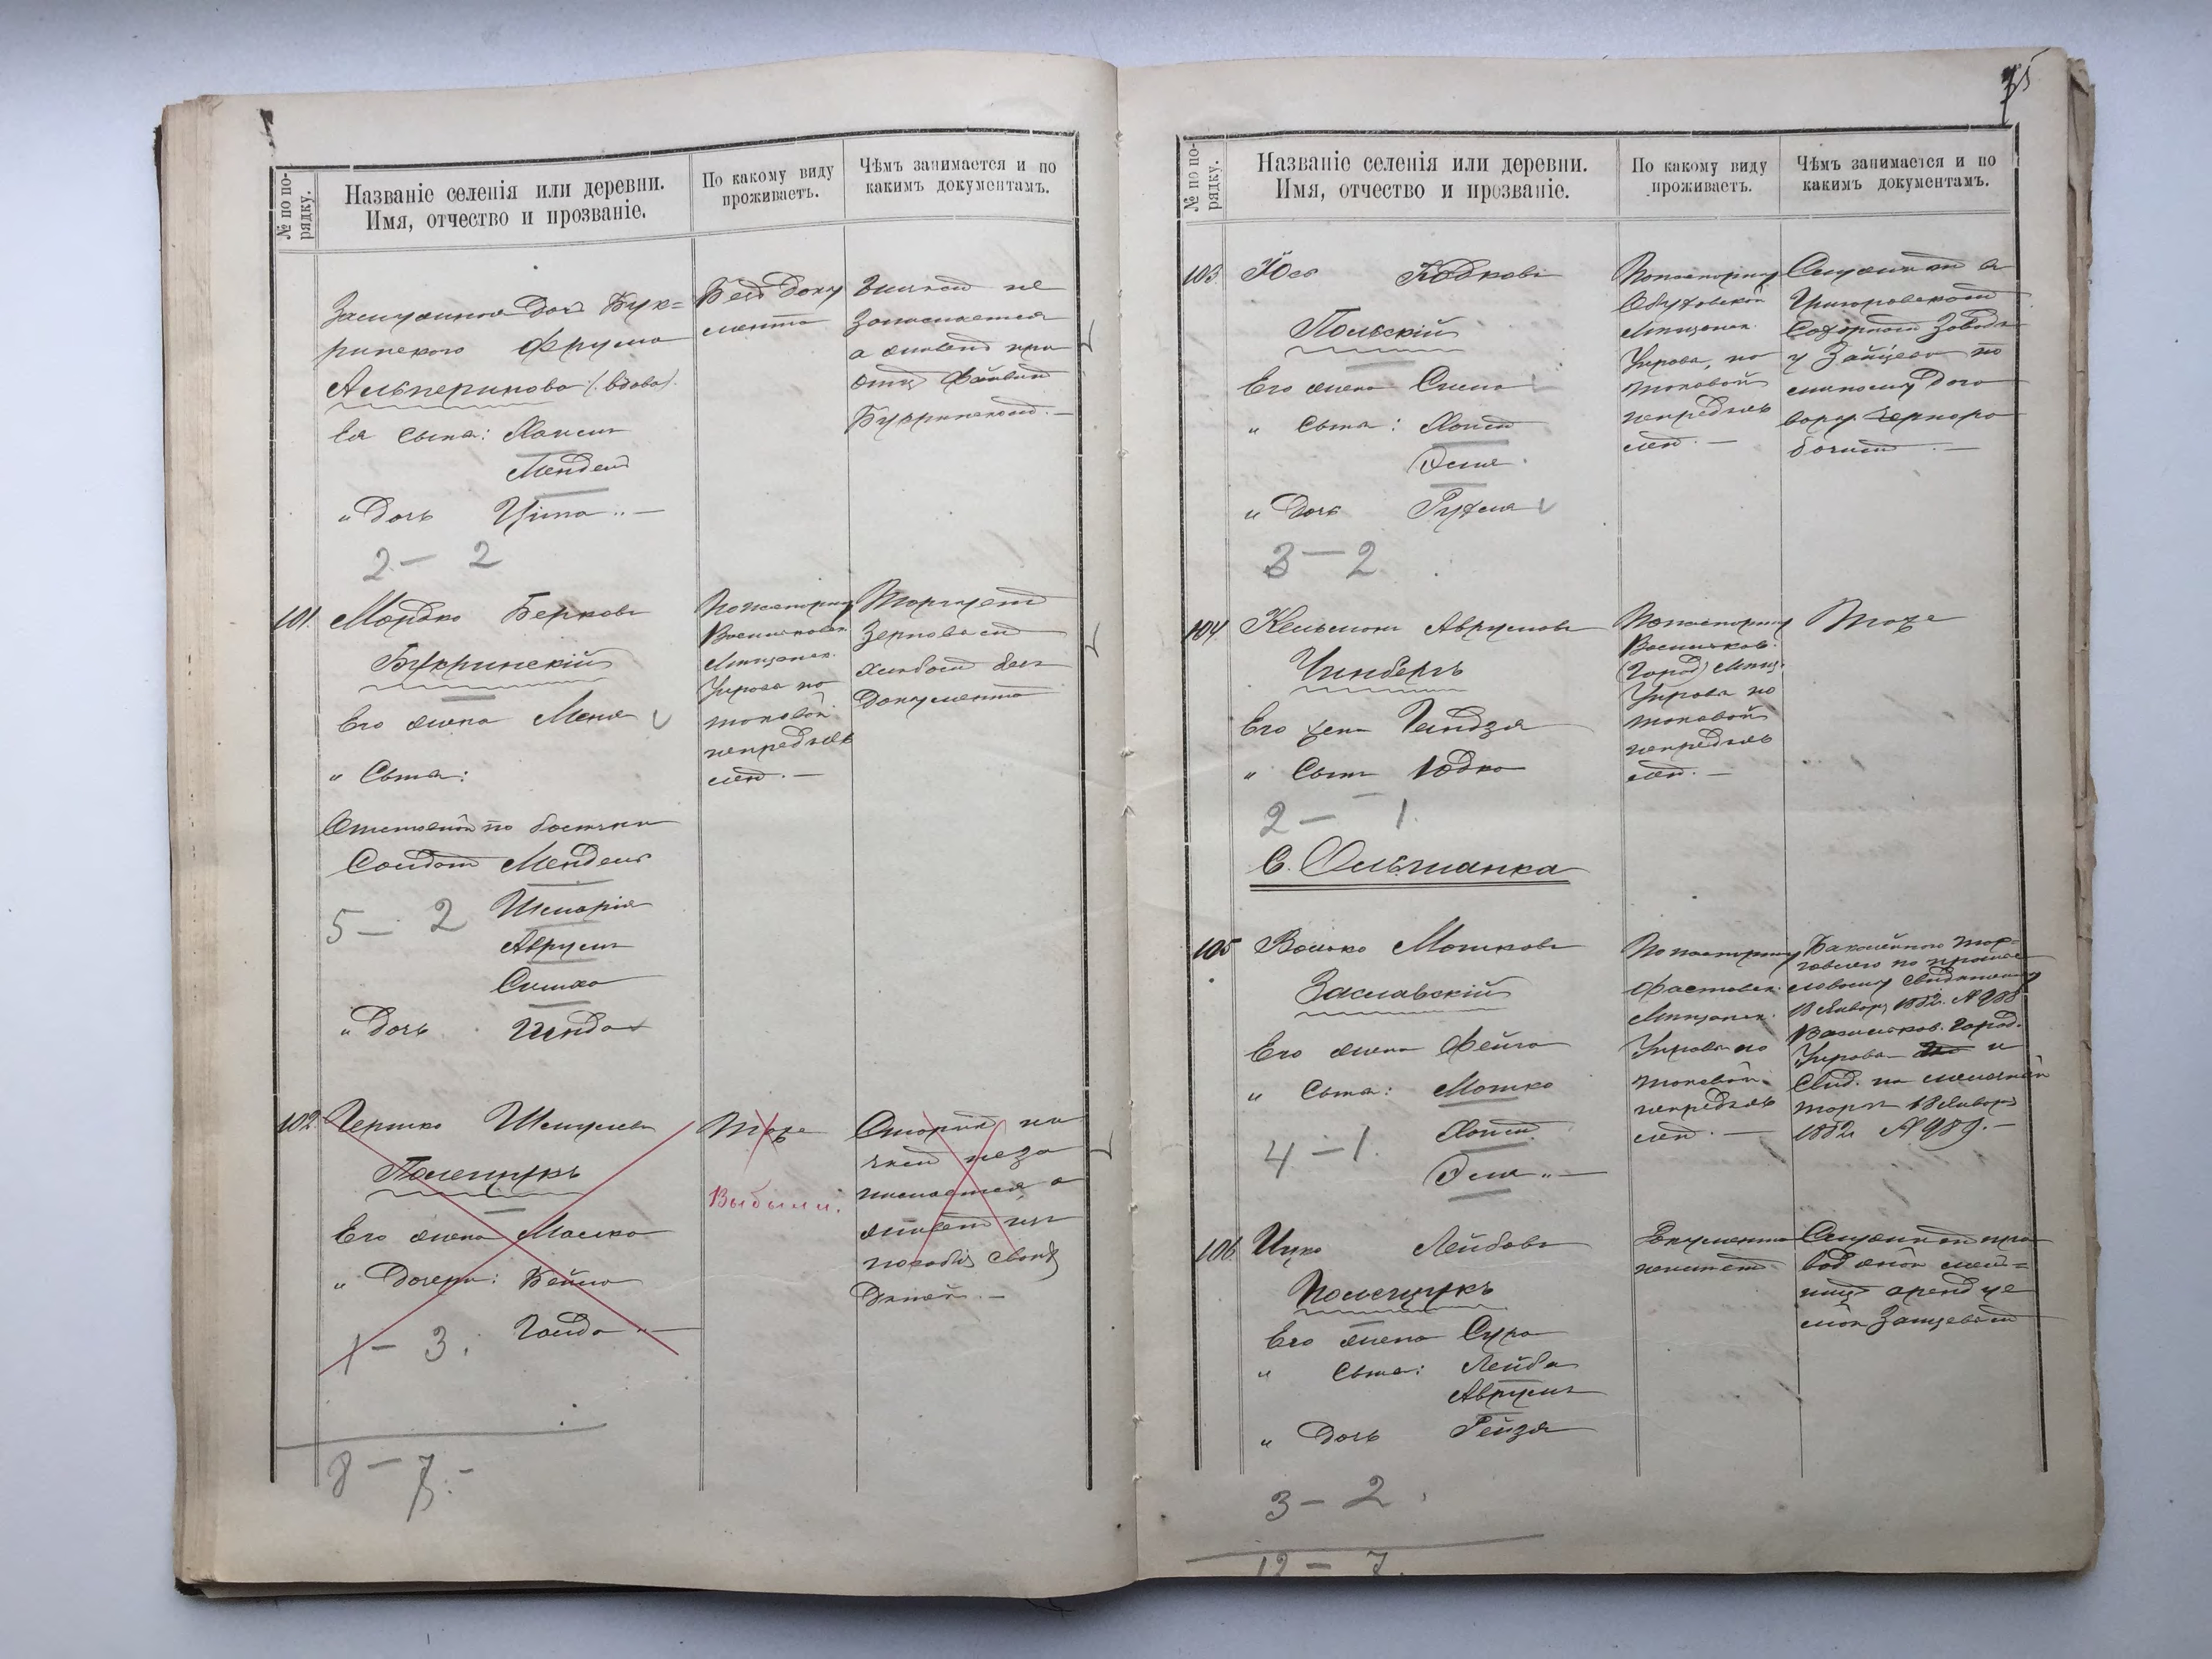 № по по-
рядку.
Названіе селенія или деревни.
Имя, отчество и прозваніе.
По какому виду
проживаетъ.
Чѣмъ занимается и по
какимъ документамъ.
Замужняя дочь Бук=
ринского Фрума
Альперинова (вдова).
Ея сыны:
Мендель
" Дочь
2 - 2
Безъ доку
мента
не
занимается
а живетъ при
отцѣ
Букринскомъ. -
101.
Мордко Берковъ
Букринскій
Его жена Меня
" Сыны:
Солдатъ Мендель
Шмарія
Аврумъ
Симха
5 - 2
" Дочь Гинда
По паспорту
Васильков.
Мѣщанск.
Управы по
таковой
непредъяв
лен. -
Торгуетъ
зерновымъ
хлѣбомъ безъ
документа
102
Гершко Шмулевъ
Полещукъ
Его жена Малка
" Дочери: Бейла
Голда " -
1 - 3.
Тоже
Выбыли.
Старикъ ни
чемъ неза
нимается, а
живетъ изъ
пособія своихъ
дѣтей. -
8 - 7. -
75
№ по по-
рядку.
Названіе селенія или деревни.
Имя, отчество и прозваніе.
По какому виду
проживаетъ.
Чѣмъ занимается и по
какимъ документамъ.
103
Юдковъ
Польскій
Его жена Сима
" Сыны: Хаимъ
" Дочь Рухля
3 - 2
По паспорту
Обуховской
Мѣщанск.
Управы, по
таковой
непредъяв
лен. -
Служитъ въ
Григоровскомъ
Сахарномъ заводѣ
у Зайцева по
личному дого
вору чернора
бочимъ. -
104
Кельманъ Аврумовъ
Гинбергъ
Его жена Гендзя
" Сынъ Юдко
2 - 1.
По паспорту
Васильков.
(Город) Мѣщ.
Управы по
таковой
непредъяв
лен. -
Тоже
С. Ольшанка
105
Волько Мошковъ
Заславскій
Его жена Фейга
" Сыны: Мошко
Хаимъ
4 - 1.
По паспорту
Фастовск.
Мѣщанск.
Управы по
таковой
непредъяв
лен. -
Бакалейною тор=
говлею по промыс
ловому свидѣтельству
18 Января 1882. № 988
Васильков. Город.
Управы и
Свид. на мелочной
торгъ 18 Января
1882 № 989. -
106.
Ицко Лейбовъ
Полещукъ
Его жена Сура
" Сыны: Лейба
Аврумъ
" Дочь Рейзя
3 - 2.
Документа
неимѣетъ
Служитъ при
водяной мель=
ницѣ арендуе
мой
12 - 7.